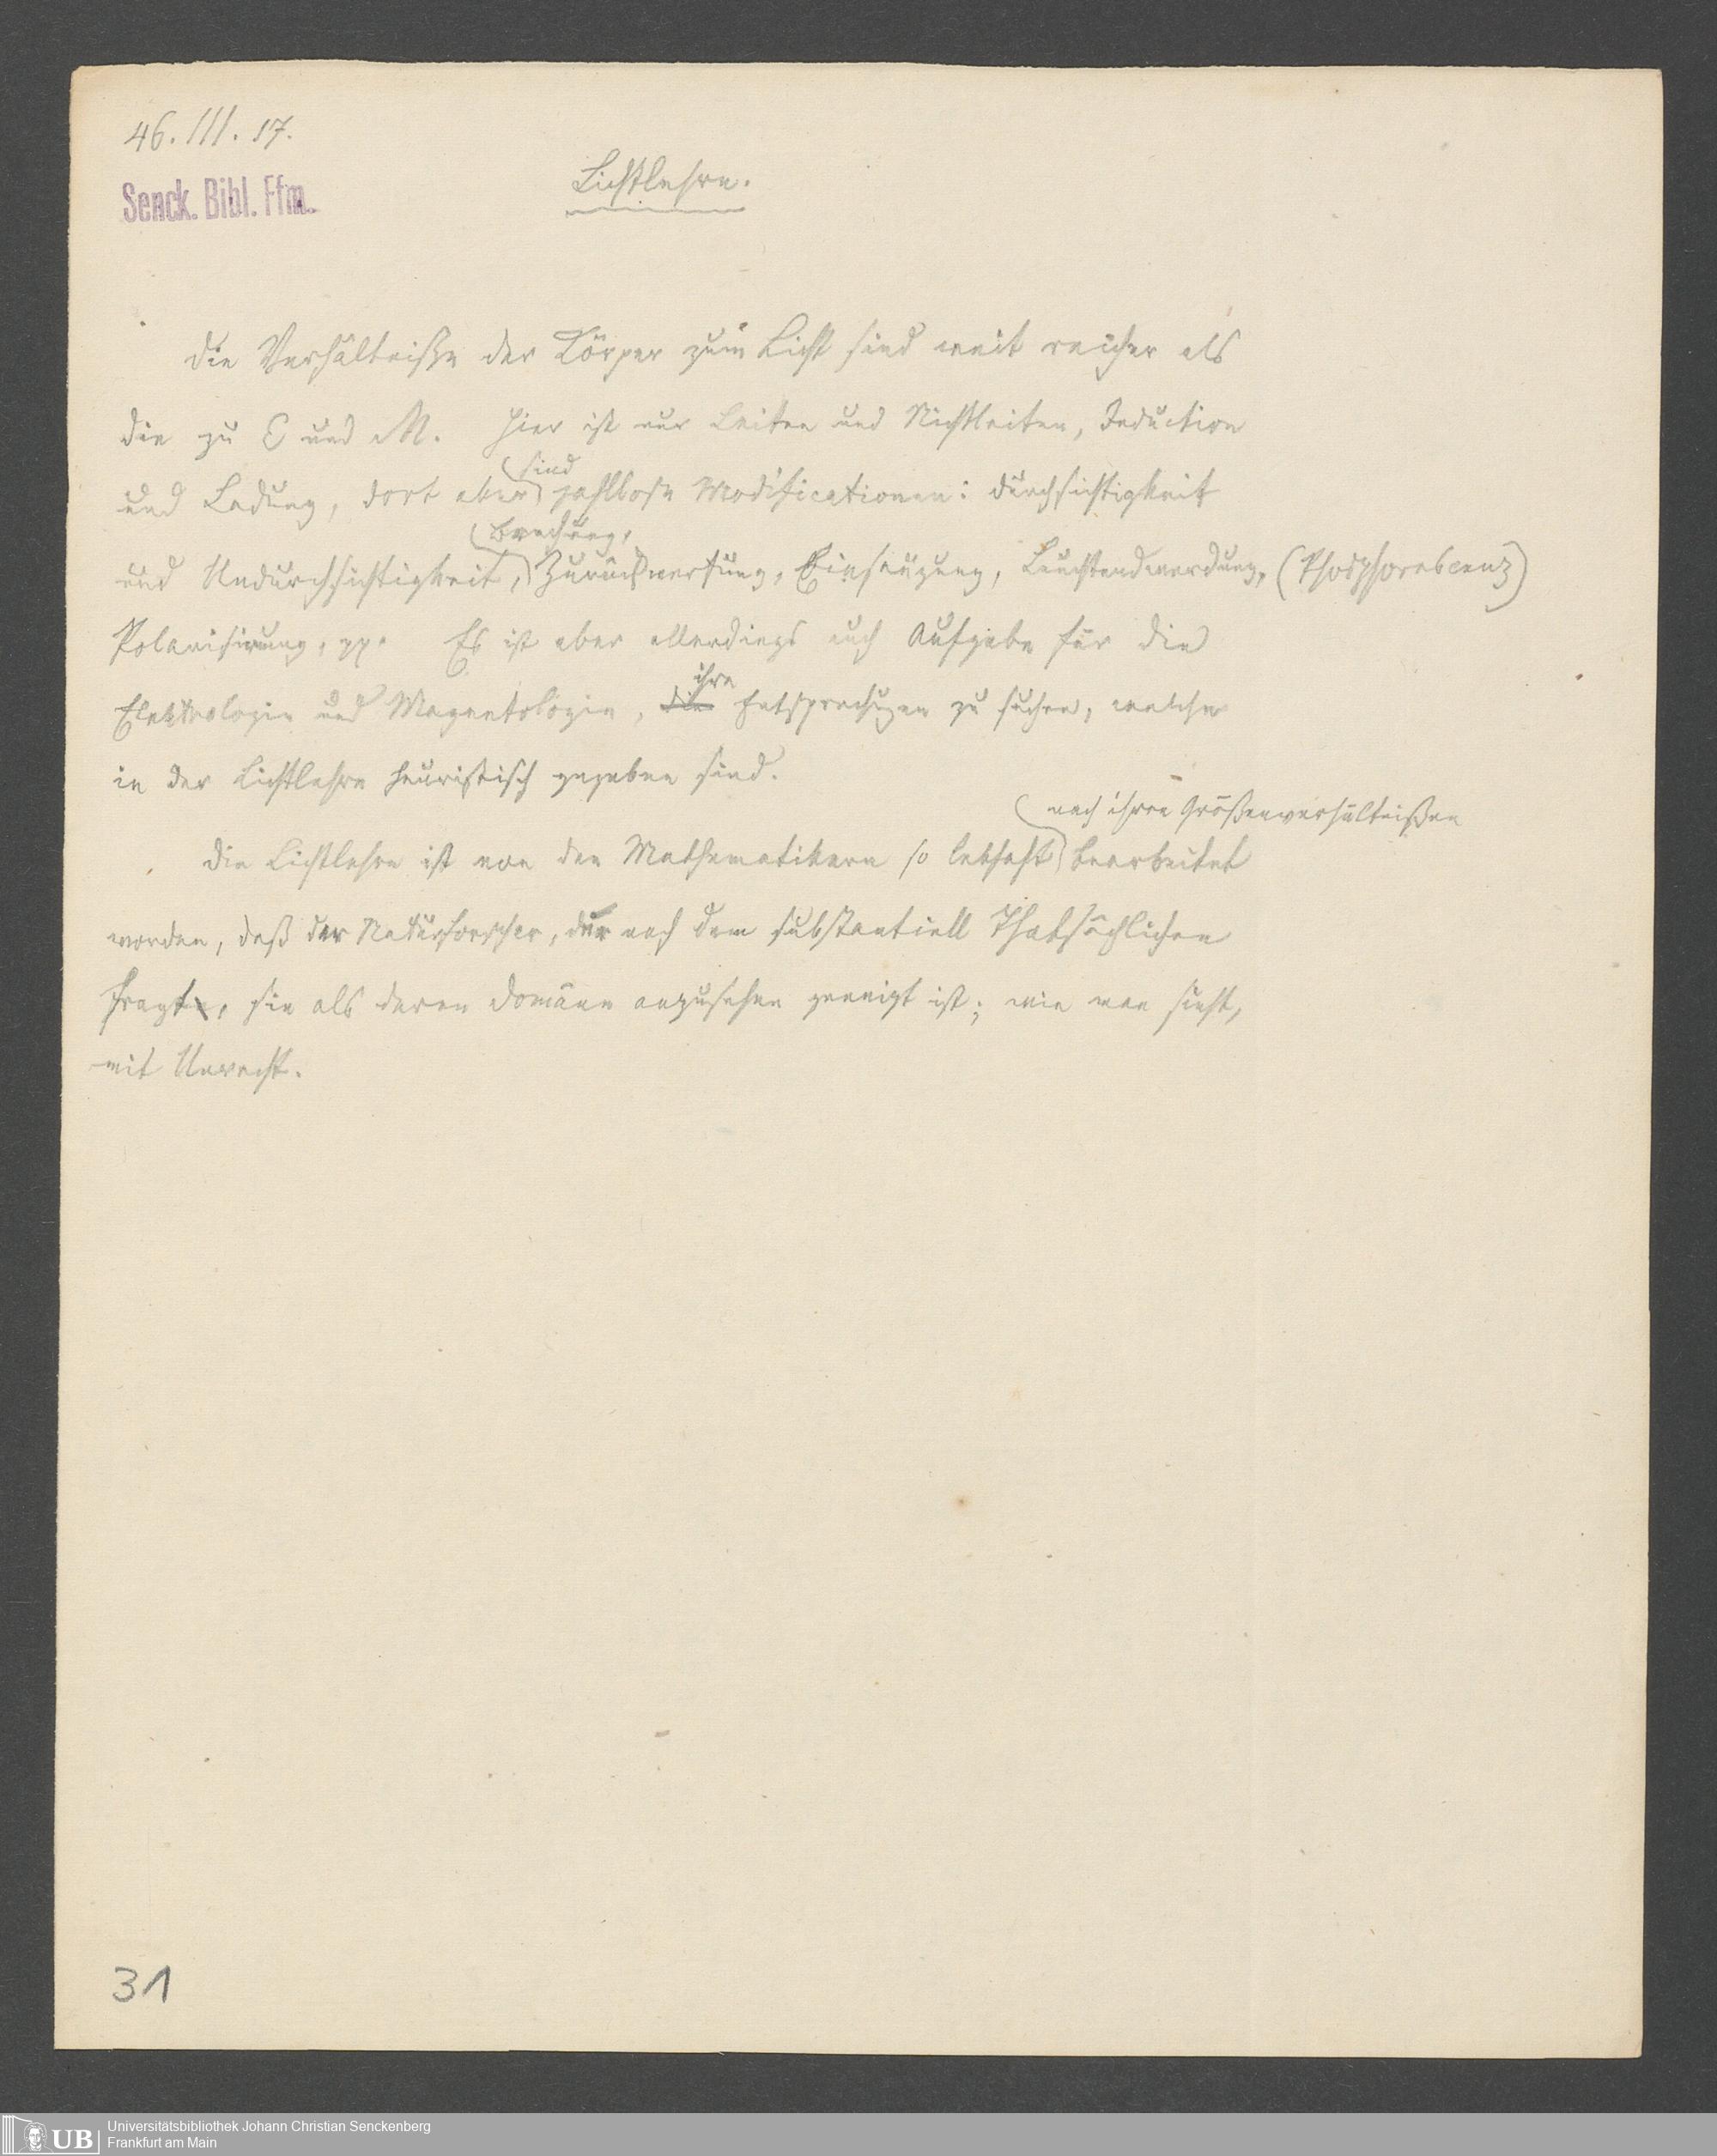 46. III. 17.
Senck. Bibl. Ffm.
Lichtlehre.
Die Verhältniße der Körper zum Licht sind weit reicher als
die zu E und M. Hier ist nur Leiten und Nichtleiten, Induction
und Ladung, dort aber sind zahllose Modificationen: Durchsichtigkeit
und Undurchsichtigkeit, Brechung, Zurückwerfung, Einsaugung, Leuchtendwerdung, (Phosphorescenz)
Polarisirung, pp. Es ist aber allerdings auch Aufgabe für die
Elektrologie und Magnetologie, die ihre Entsprechungen zu suchen, welche
in der Lichtlehre heuristisch gegeben sind.
Die Lichtlehre ist von den Mathematikern so lebhaft nach ihren Größenverhältnißen bearbeitet
worden, daß der Naturforscher, der nach dem substantiell Thatsächlichen
fragt, sie als deren Domäne anzusehen geneigt ist; wie man sieht,
mit Unrecht.
31
UB Universitätsbibliothek Johann Christian Senckenberg
Frankfurt am Main